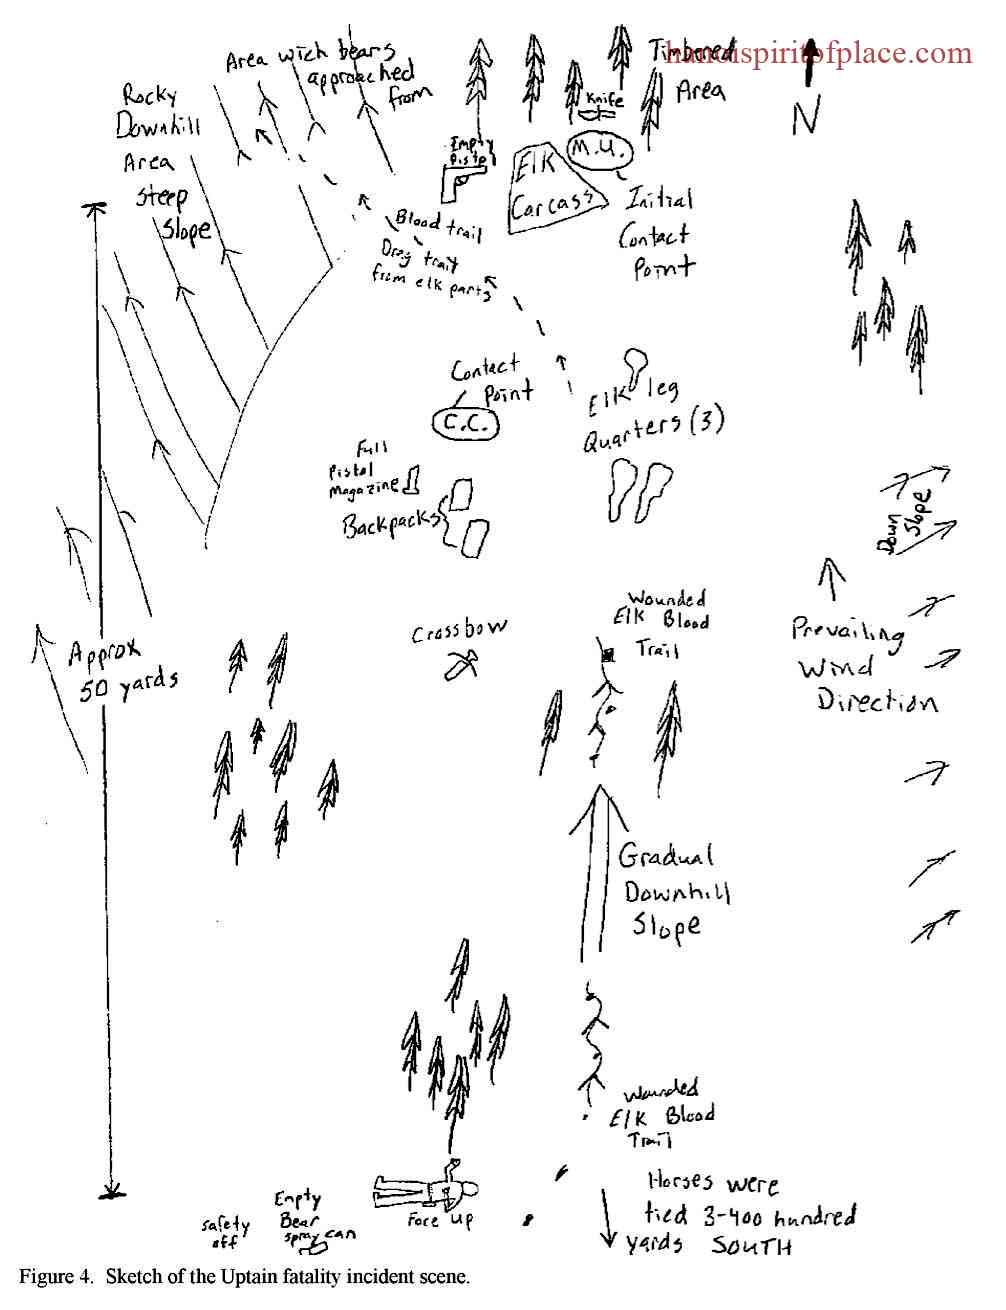 hanoispiritofplace.com
Area wich bears
approached
from
Timbered
Area
N
Rocky
Downhill
Area
Steep
Slope
Knife
Empty
Pistol
Elk
Carcass
M.U.
Initial
Contact
Point
Blood trail
Drag trail
from elk parts
Contact
Point
C.C.
Elk leg
Quarters (3)
Full
Pistol
Magazine
Backpacks
Down
Slope
Prevailing
Wind
Direction
Crossbow
Wounded
Elk Blood
Trail
Approx
50 yards
Gradual
Downhill
Slope
Wounded
Elk Blood
Trail
Face Up
Empty
Bear
spray can
safety
off
Horses were
tied 3-400 hundred
yards SOUTH
Figure 4. Sketch of the Uptain fatality incident scene.